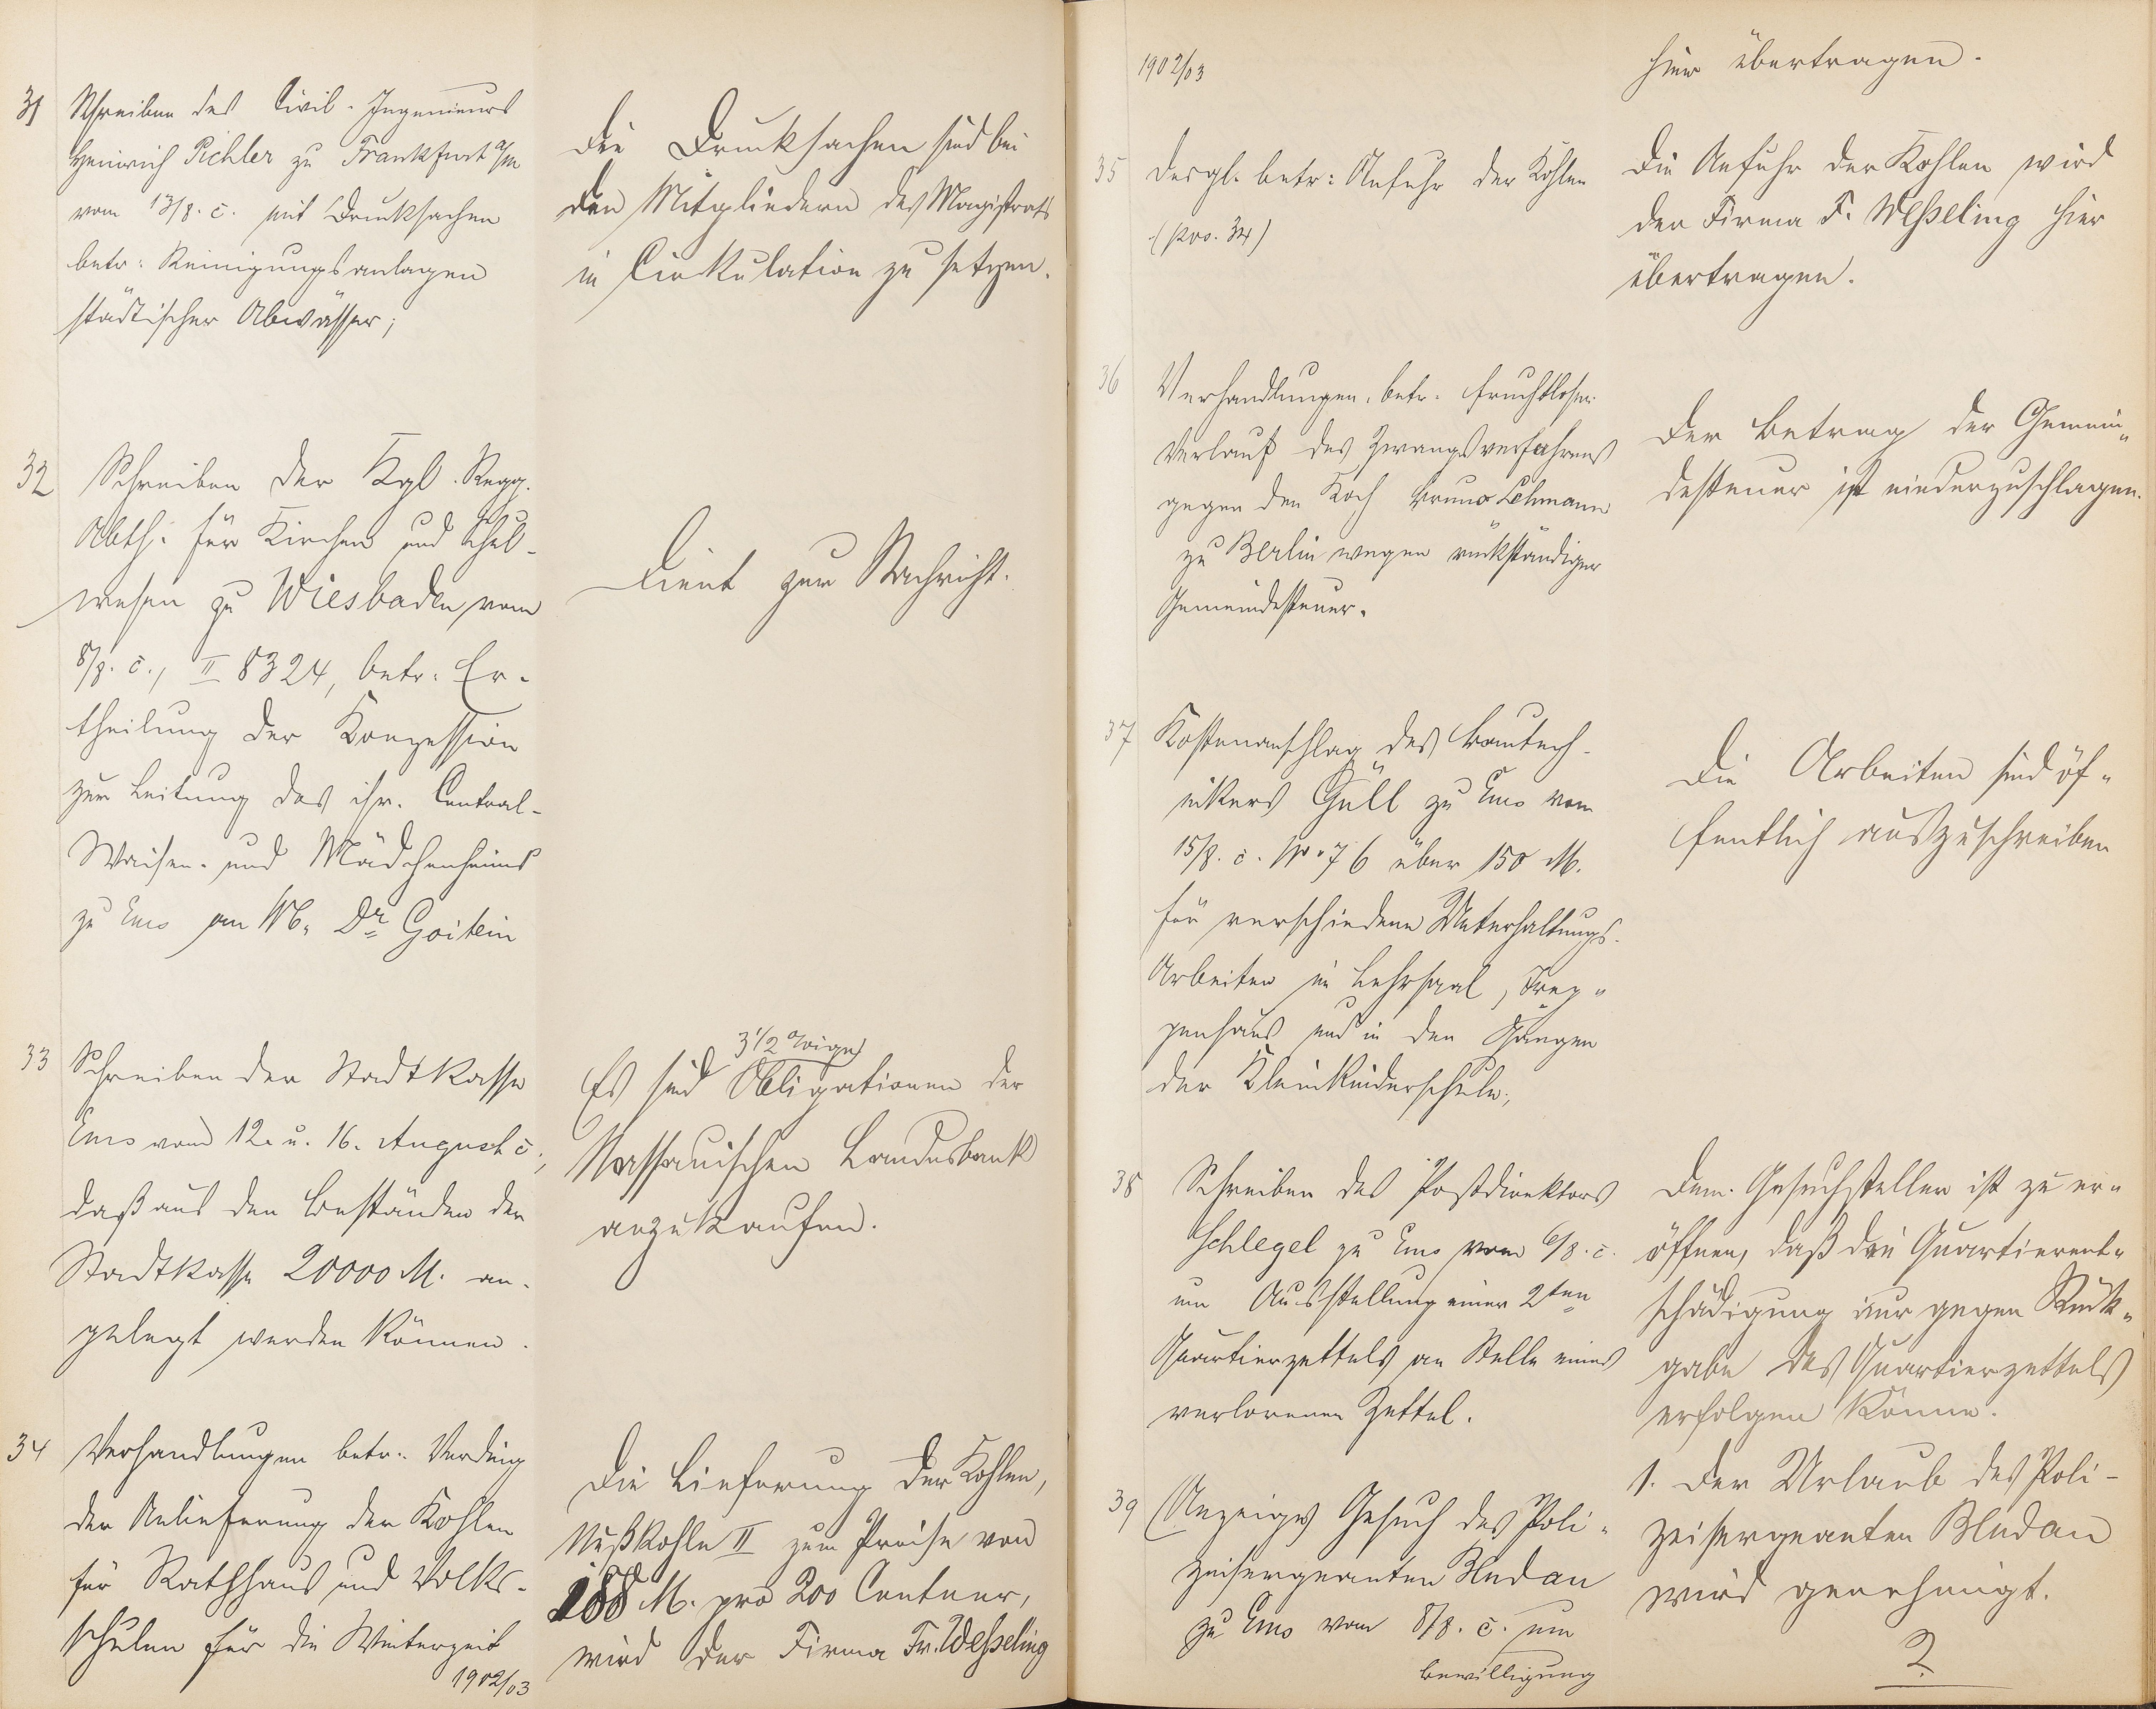 31 Schreiben des Civil-Ingenieurs
Heinrich Pichler zu Frankfurt a/M
vom 13/8. c. mit Drucksachen
betr: Reinigungsanlagen
städtischer Abwässer;
Die Drucksachen sind bei
den Mitgliedern des Magistrats
in Cirkulation zu setzen.
32 Schreiben der Kgl. Regg.
Abth: für Kirchen und Schul-
wesen zu Wiesbaden vom
8/8. c., II 8324, betr: Er-
theilung der Konzession
zur Leitung des isr. Central-
Waisen- und Mädchenheims
zu Ems an Dr Goitein
Dient zur Nachricht.
33 Schreiben der Stadtkasse
Ems vom 12. u. 16. August c.,
daß aus den Beständen der
Stadtkasse 20000 M. an-
gelegt werden können.
3 1/2 %ige
Es sind Obligationen der
Nassauischen Landesbank
anzukaufen.
34 Verhandlungen betr: Verding
der Anlieferung der Kohlen
für Rathhaus und Volks-
schulen für die Winterzeit
1902/03
Die Lieferung der Kohlen,
Nußkohle II zum Preise von
188 M. pro 200 Centner,
wird der Firma Fr. Weßeling
1902/03
hier übertragen.
35 Desgl. betr: Anfuhr der Kohlen
(pos. 34)
Die Anfuhr der Kohlen wird
der Firma F. Weßeling hier
übertragen.
36 Verhandlungen, betr. fruchtlosen
Verlauf des Zwangsverfahrens
gegen den Koch Bruno Lehmann
zu Berlin wegen rückständiger
Gemeindesteuer.
Der Betrag der Gemein-
desteuer ist niederzuschlagen.
37 Kostenanschlag des Bautech-
nikers Güll zu Ems vom
15/8. c. No. 76 über 150 M.
für verschiedene Unterhaltungs-
Arbeiten im Lehrsaal, Trep-
penhaus und in den Gängen
der Kleinkinderschule,
Die Arbeiten sind öf-
fentlich auszuschreiben
38 Schreiben des Postdirektors
Schlegel zu Ems vom 6/8. c.
um Ausstellung einer 2ten
Quartierzettels an Stelle eines
verlorenen Zettel.
Dem Gesuchsteller ist zu er-
öffnen, daß die Quartierent-
schädigung nur gegen Rück-
gabe des Quartierzettels
erfolgen könne.
39 (Anzeige) Gesuch des Poli-
zeisergeanten Bludau
zu Ems vom 8/8. c. um
Bewilligung
1. Der Urlaub des Poli-
zeisergeanten Bludau
wird genehmigt.
2